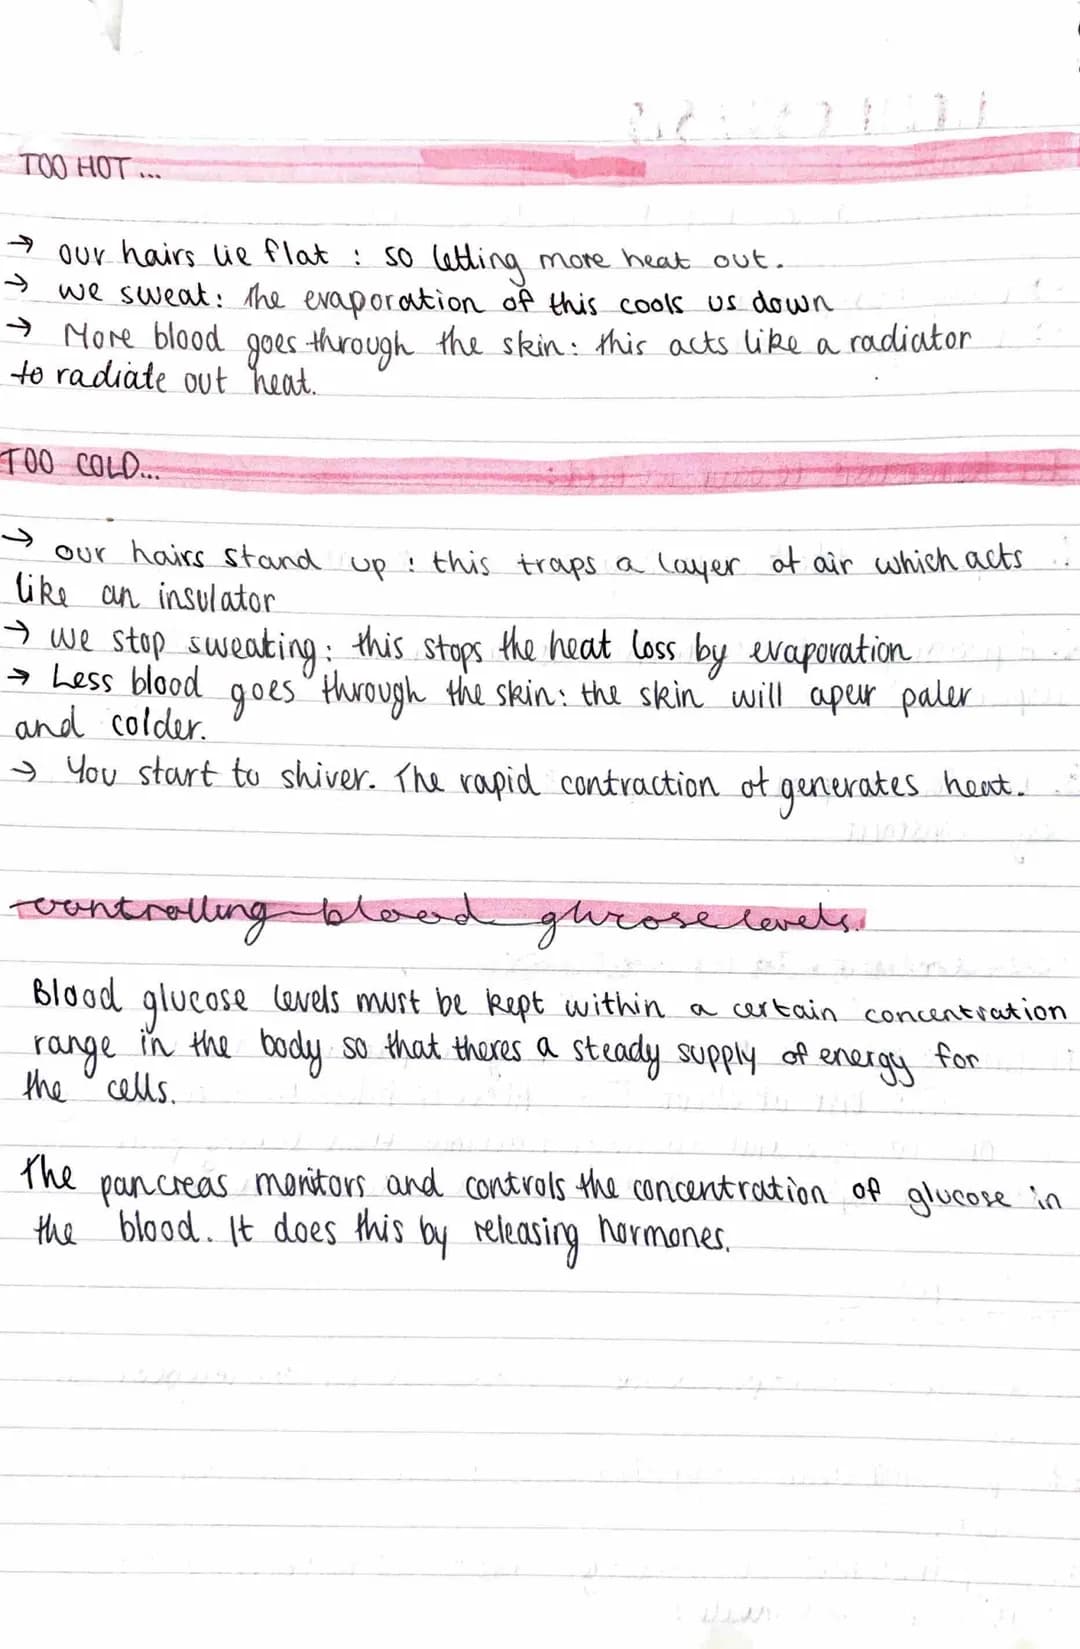 TOO HOT...
→ our hairs lie flat : so letting more heat out.
→ we sweat: the evaporation of this cools us down
→ More blood goes through the skin: this acts like a radiator
to radiate out heat.
TOO COLD...
→ our hairs stand up : this traps a layer of air which acts
like an insulator
→ we stop sweating: this stops the heat loss by evaporation
→ Less blood goes through the skin: the skin will apeur paler
and colder.
→ You start to shiver. The rapid contraction of generates heat.
controlling blood glucose levels.
Blood glucose levels must be kept within a certain concentration
range in the body so that theres a steady supply of energy for
the cells.
The pancreas monitors and controls the concentration of glucose in
the blood. It does this by releasing hormones.